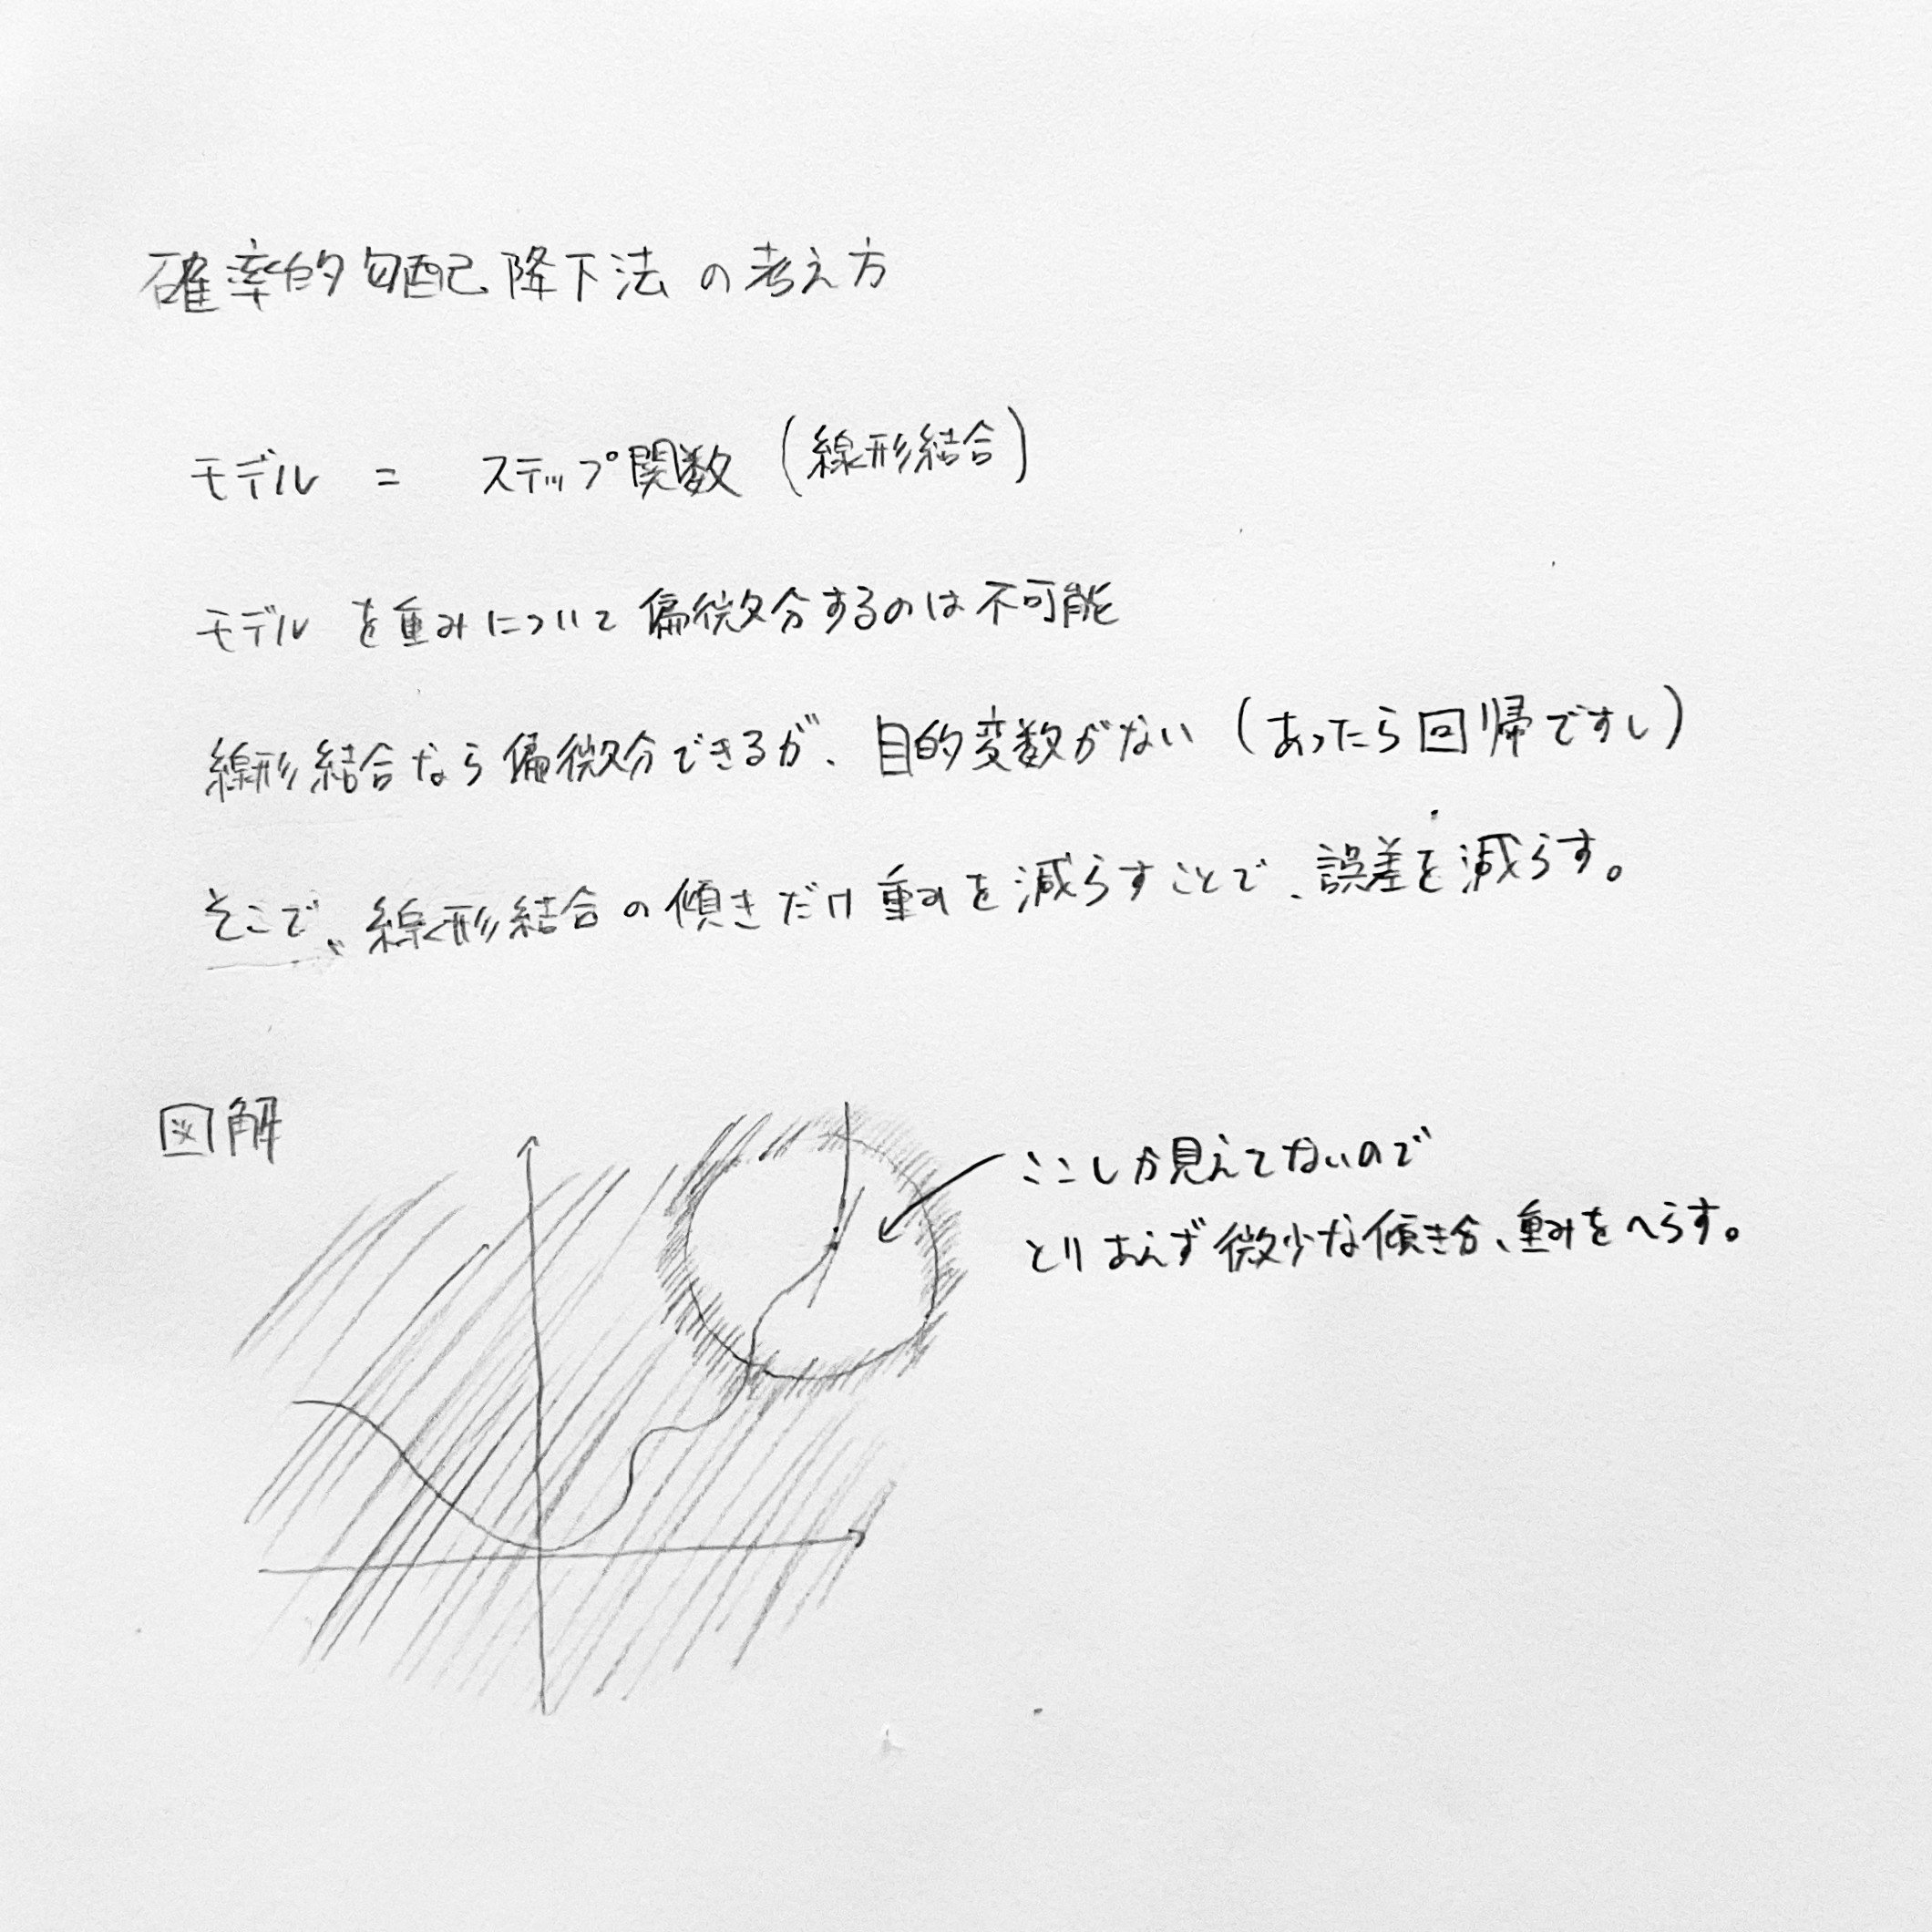 確率的勾配降下法の考え方
モデル = ステップ関数 (線形結合)
モデルを重みについて偏微分するのは不可能
線形結合なら偏微分できるが、目的変数がない (あったら回帰ですし)
そこで、線形結合の傾きだけ重みを減らすことで、誤差を減らす。
図解
ここしか見えてないので
とりあえず微少な傾き分、重みをへらす。